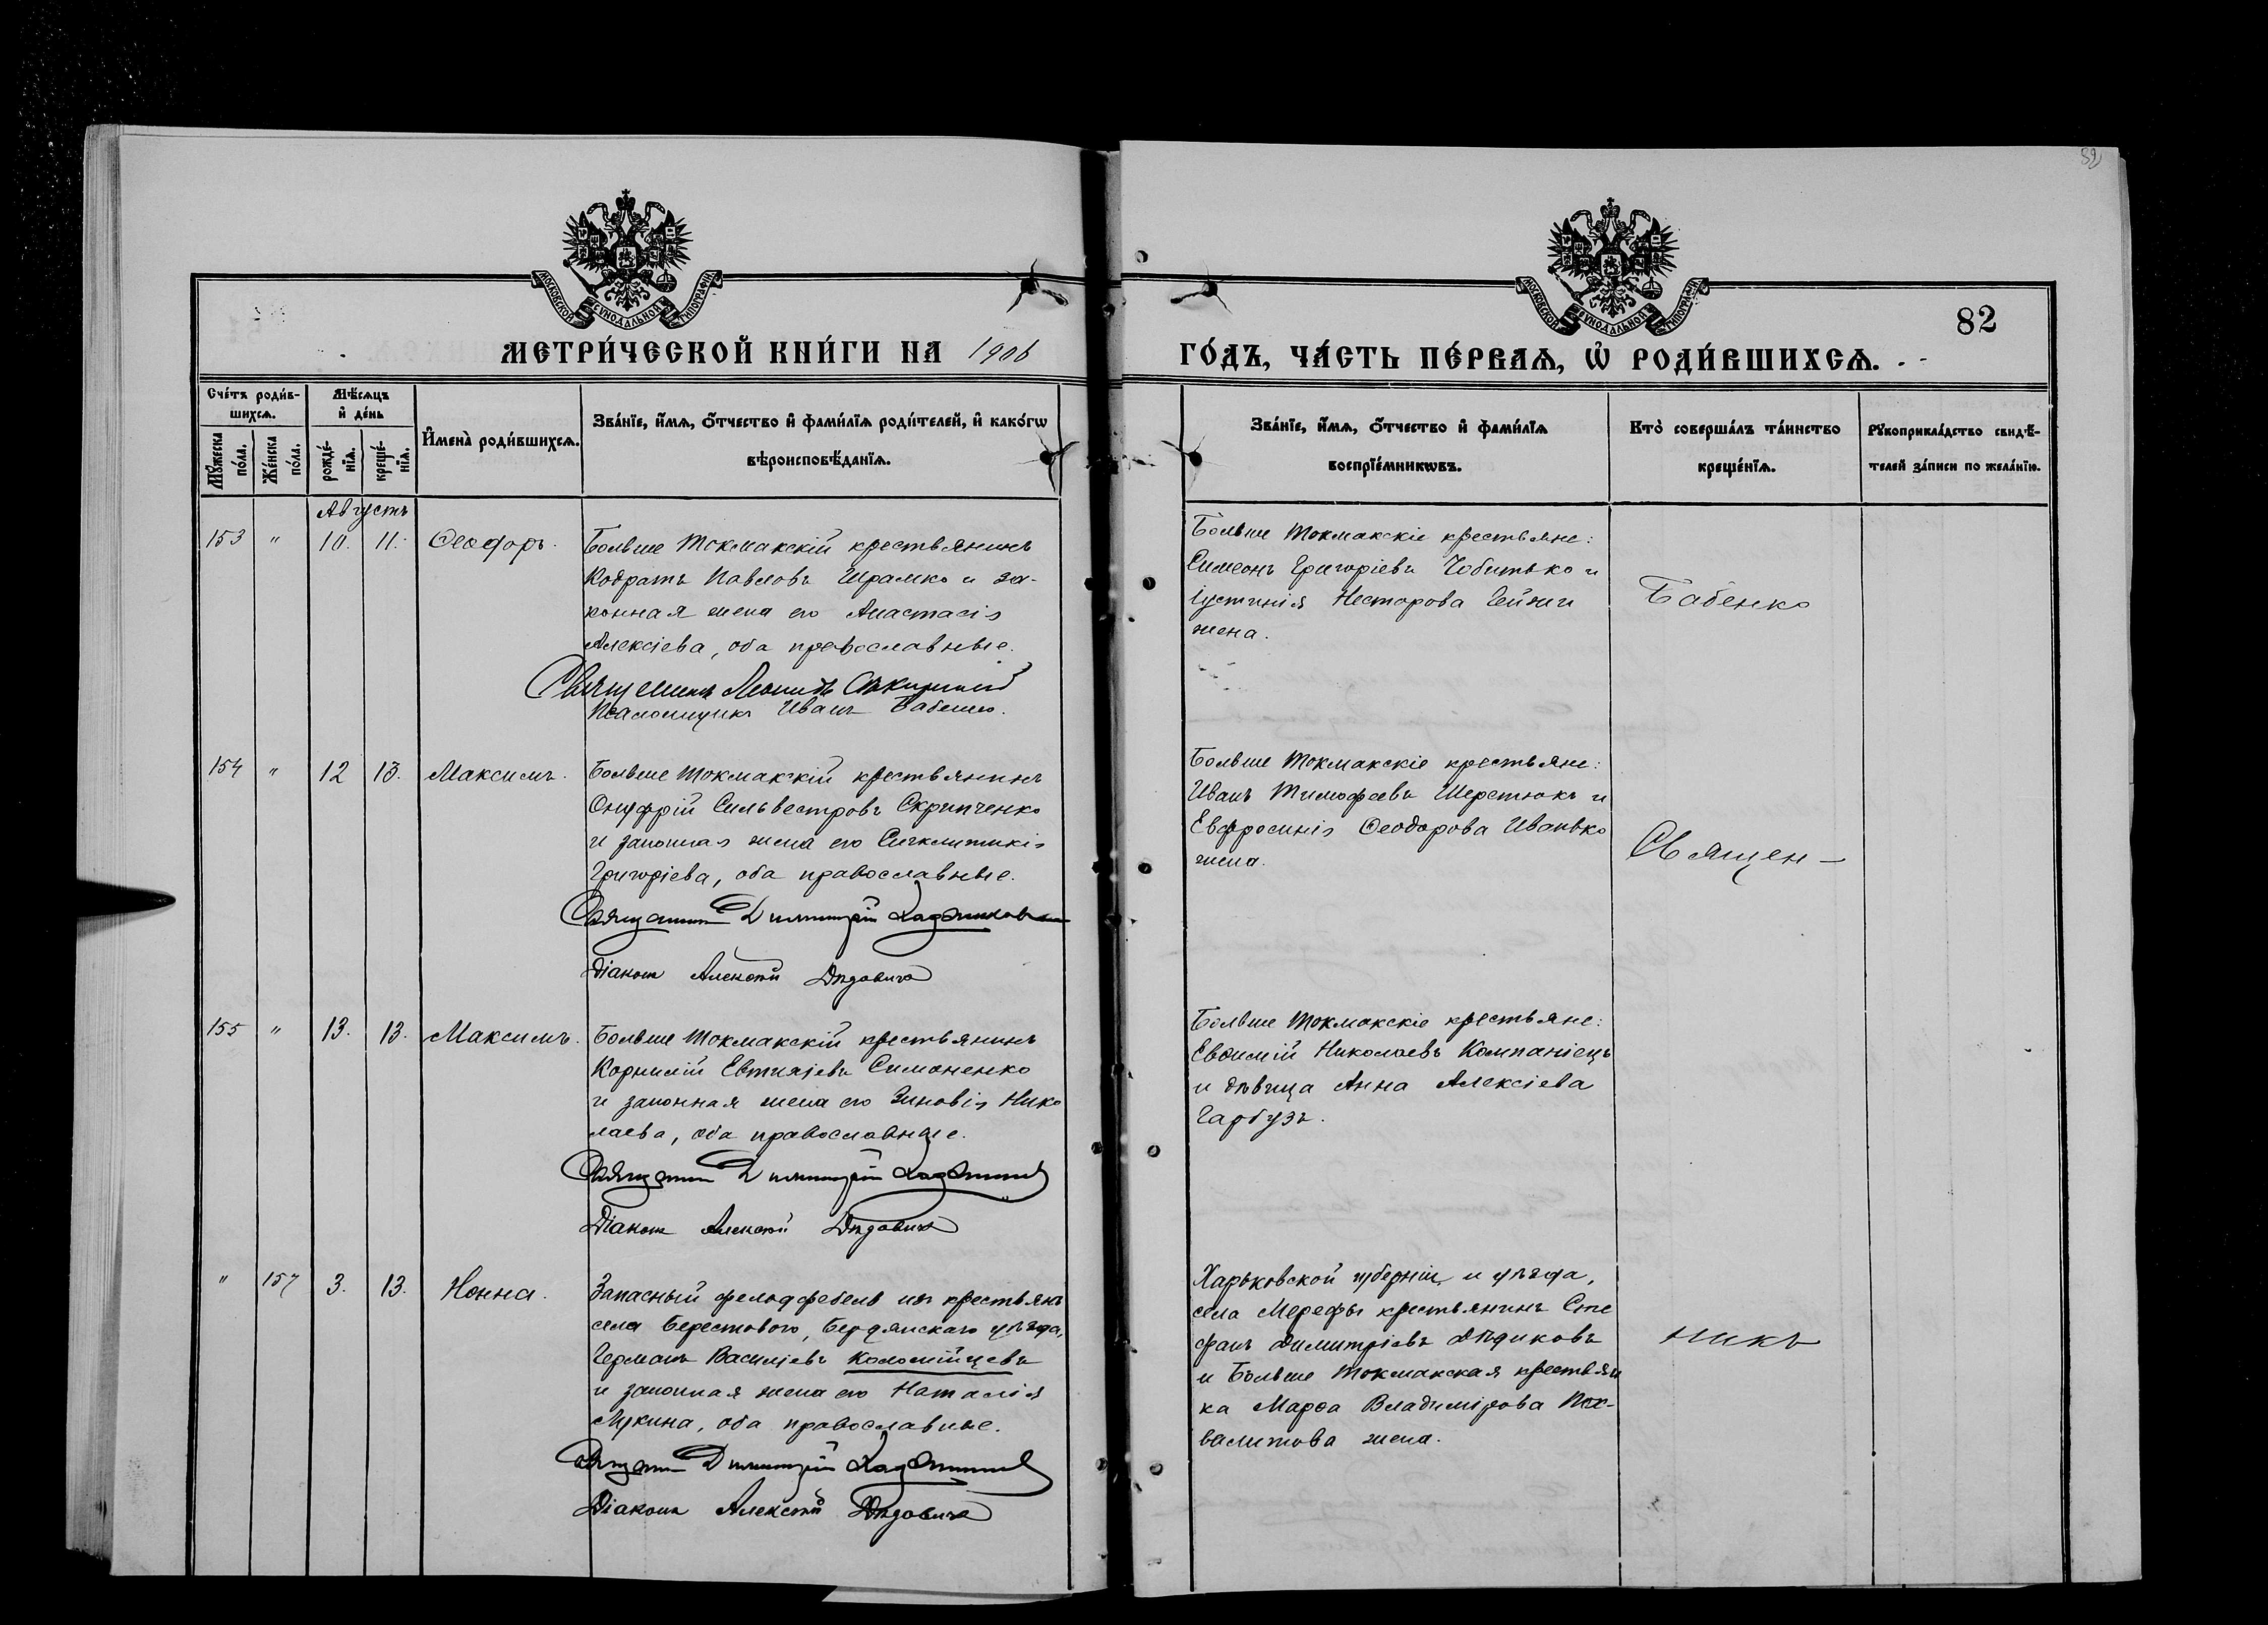 52
МОСКОВСКОЙ СѴНОДАЛЬНОЙ ТИПОГРАФІИ
МОСКОВСКОЙ СѴНОДАЛЬНОЙ ТИПОГРАФІИ
82
МЕТРИ́ЧЕСКОЙ КНИ́ГИ НА 1906
ГО́ДЪ, ЧА́СТЬ ПЕ́РВАѦ, Ѡ҆ РОДИ́ВШИХСѦ.
Сче́тъ роди́в-
шихсѧ.
Мѣ́сѧцъ
и҆ де́нь
Мꙋ́жеска
по́ла.
Же́нска
по́ла.
рожде́-
нїѧ.
креще́-
нїѧ.
И҆мена̀ роди́вшихсѧ.
Зва́нїе, и҆́мѧ, ѻ҆́тчество и҆ фами́лїѧ роди́телей, и҆ како́гѡ
вѣроисповѣ́данїѧ.
Зва́нїе, и҆́мѧ, ѻ҆́тчество и҆ фами́лїѧ
воспрїе́мникѡвъ.
Кто̀ соверша́лъ та́инство
креще́нїѧ.
Рꙋкоприкла́дство свидѣ́-
телей за́писи по жела́нїю.
Августъ
153 " 10. 11. Ѳеодоръ.
Больше Токмакскій крестьянинъ
Кодратъ Павловъ Шрамко и за-
конная жена его Анастасія
Алексіева, оба православные.
Священникъ Леонидъ
Псаломщикъ Иванъ Бабенко.
Больше Токмакскіе крестьяне:
Симеонъ Григоріевъ Чобитько и
Іустинія Несторова Гейжи
жена.
Бабенко
154 " 12 13. Максимъ.
Больше Токмакскій крестьянинъ
Онуфрій Сильвестровъ Скрипченко
и законная жена его Сигклитикія
Григоріева, оба православные.
Священникъ Димитрій
Діаконъ Алексѣй Дѣдовичъ
Больше Токмакскіе крестьяне:
Иванъ Тимофеевъ Шерстюкъ и
Евфросинія Ѳеодорова Иванько
жена.
Священ-
155 " 13. 13. Максимъ.
Больше Токмакскій крестьянинъ
Корнилій Евтихіевъ Симоненко
и законная жена его Зиновія Нико
лаева, оба православные.
Священникъ Димитрій
Діаконъ Алексѣй Дѣдовичъ
Больше Токмакскіе крестьяне:
Евѳимій Николаевъ Компаніецъ
и дѣвица Анна Алексіева
Гарбузъ.
" 157 3. 13. Нонна.
Запасный фельдфебель изъ крестьянъ
села Берестового, Бердянскаго уѣзда,
Германъ Василіевъ Коломійцевъ
и законная жена его Наталія
Лукина, оба православные.
Священникъ Димитрій
Діаконъ Алексѣй Дѣдовичъ
Харьковской губерніи и уѣзда,
села Мерефы крестьянинъ Сте
фанъ Димитріевъ Дѣдиковъ
и Больше Токмакская крестьян
ка Марѳа Владимірова Пох-
валитова жена.
никъ